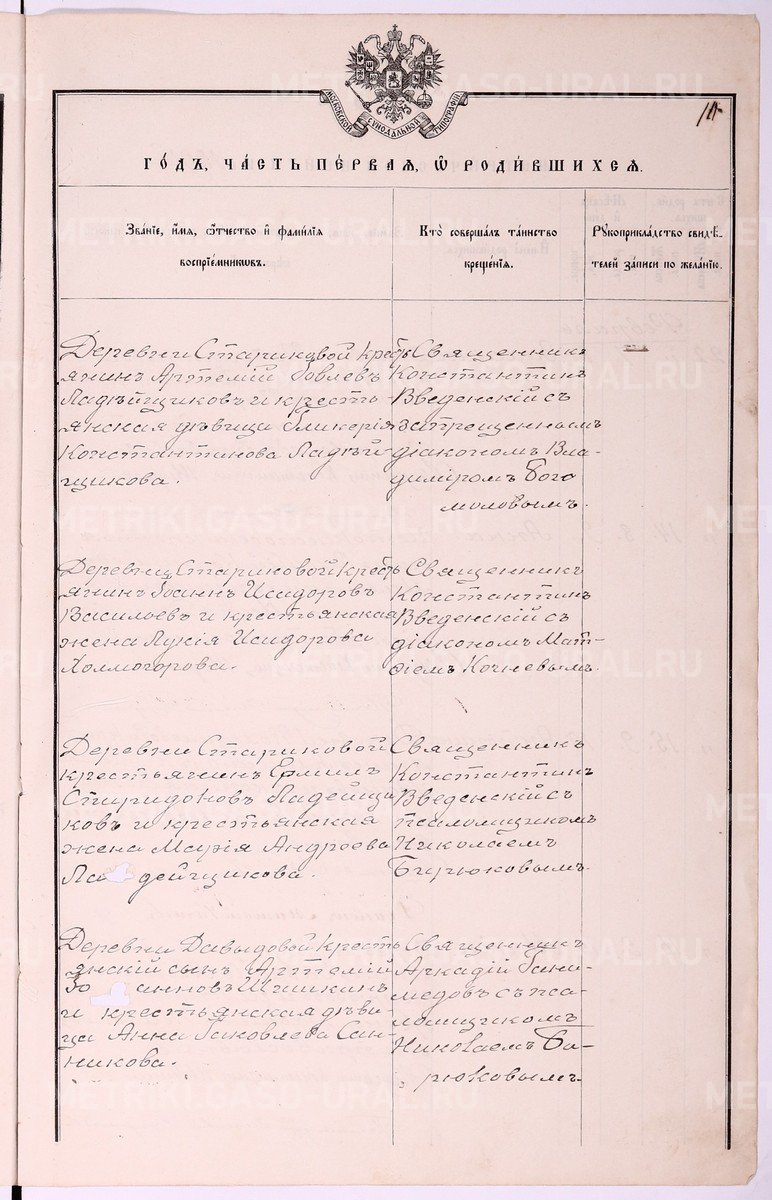 МОСКОВСКОЙ СѴНОДАЛЬНОЙ ТИПОГРАФІИ
14
ГО́ДЪ, ЧА́СТЬ ПЕ́РВАЯ, Ѡ҆ РОДИ́ВШИХСЯ.
Зва́ніе, и҆́мя, ѻ҆́тчество и҆ фами́лія
воспріе́мниковъ.
Кто̀ соверша́лъ та́инство
креще́нія.
Рꙋкоприкла́дство свидѣ́-
телей за́писи по жела́нію.
Деревни Стариковой кресть
янинъ Артемій
Ладѣйщиковъ и кресть-
янская дѣвица Гликерія
Константинова Ладѣй-
щикова.
Священникъ
Константинъ
Введенскій съ
запрещеннымъ
діакономъ Вла-
диміромъ Бого
моловымъ.
Деревни Стариковой кресть
янинъ Іоаннъ Исидоровъ
Васильевъ и крестьянская
жена Лукія Исидорова
Холмогорова.
Священникъ
Константинъ
Введенскій съ
діакономъ Мат-
ѳіемъ Кочневымъ.
Деревни Стариковой
крестьянинъ Ермилъ
Спиридоновъ Ладейщи
ковъ и крестьянская
жена Марія Андреева
Ладейщикова.
Священникъ
Константинъ
Введенскій съ
псаломщикомъ
Николаемъ
Бирюковымъ.
Деревни Давыдовой кресть
янскій сынъ Артемій
Іоанновъ Шишкинъ
и крестьянская дѣви-
ца Анна Іаковлева Сан-
никова.
Священникъ
Аркадій Гани-
медовъ съ пса-
ломщикомъ
Николаемъ Би-
рюковымъ.
METRIKI.GASO-URAL.RU